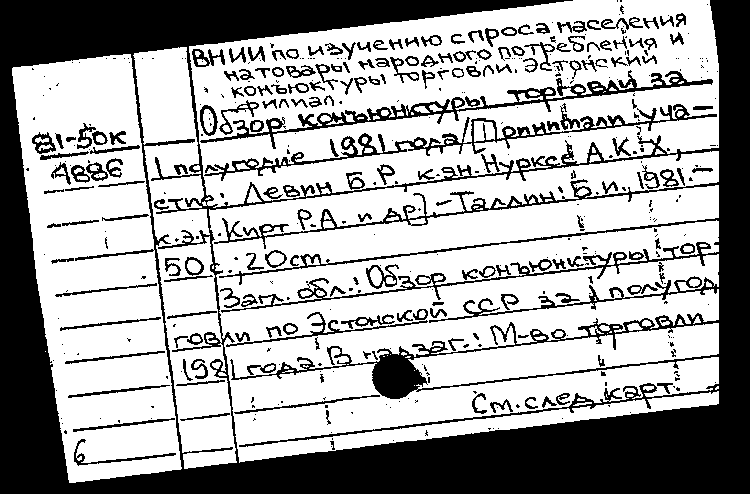 ВНИИ по изучению спроса населения
на товары народного потребления и
конъюктуры торговли. Эстонский
филиал.
Обзор конъюнктуры торговли за
81-50к
4886
I полугодие 1981 года/[Принимали уча-
стие: Левин Б.Р., к.эн. Нурксе А.К.-Х.,
к.э.н. Кирт Р.А. и др]. - Таллин: Б.и., 1981. -
50 с.; 20 cm.
Загл. обл.: Обзор конъюнктуры тор-
говли по Эстонской ССР за I полугод
1981 года. В надзаг.: М-во торговли
См. след. карт.
6